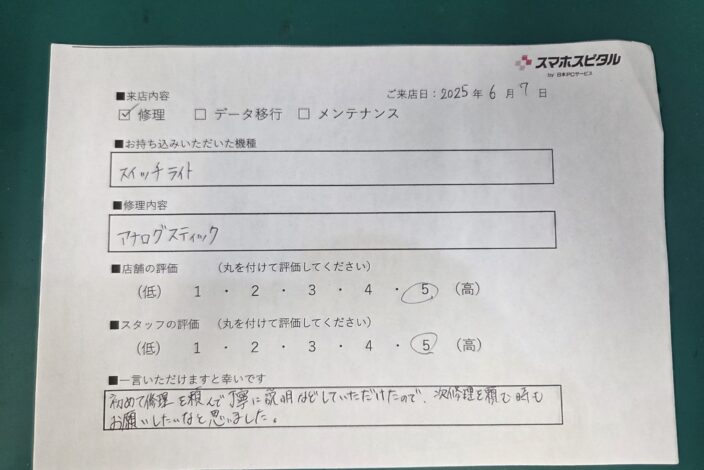 スマホスピタル
by 日本PCサービス
■来店内容
ご来店日：2025年6月7日
☑ 修理 □ データ移行 □ メンテナンス
■お持ち込みいただいた機種
スイッチライト
■修理内容
アナログスティック
■店舗の評価 （丸を付けて評価してください）
（低） 1 ・ 2 ・ 3 ・ 4 ・ 5 （高）
■スタッフの評価 （丸を付けて評価してください）
（低） 1 ・ 2 ・ 3 ・ 4 ・ 5 （高）
■一言いただけますと幸いです
初めて修理を頼んで丁寧に説明などしていただけたので、次修理を頼む時も
お願いしたいなと思いました。